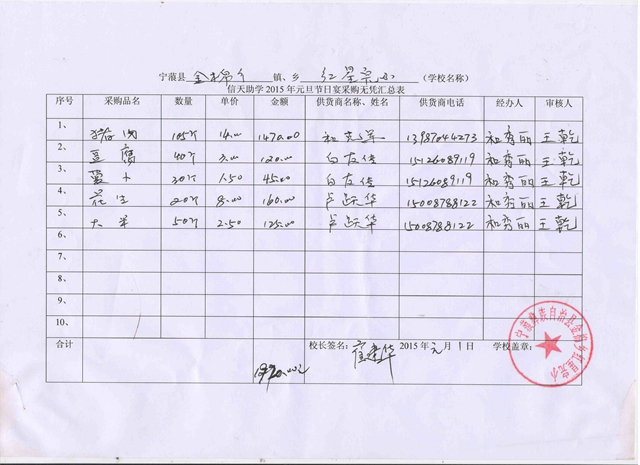 宁蒗县 金棉乡 镇、乡 红星完小 （学校名称）
信天助学 2015 年元旦节日宴采购无凭汇总表
序号 采购品名 数量 单价 金额 供货商名称、姓名 供货商电话 经办人 审核人
1、 猪肉 105斤 14.00 1470.00 和 13987044273 和秀丽 王乾
2、 豆腐 40斤 3.00 120.00 白友佳 15126089119 和秀丽 王乾
3、 萝卜 30斤 1.50 45.00 白友佳 15126089119 和秀丽 王乾
4、 花生 20斤 8.00 160.00 卢跃华 15008788122 和秀丽 王乾
5、 大米 50斤 2.50 125.00 卢跃华 15008788122 和秀丽 王乾
6、
7、
8、
9、
10、
合计 校长签名： 华 2015 年 元 月 1 日 学校盖章：
1920.00元
宁蒗彝族自治县金棉乡红星完小